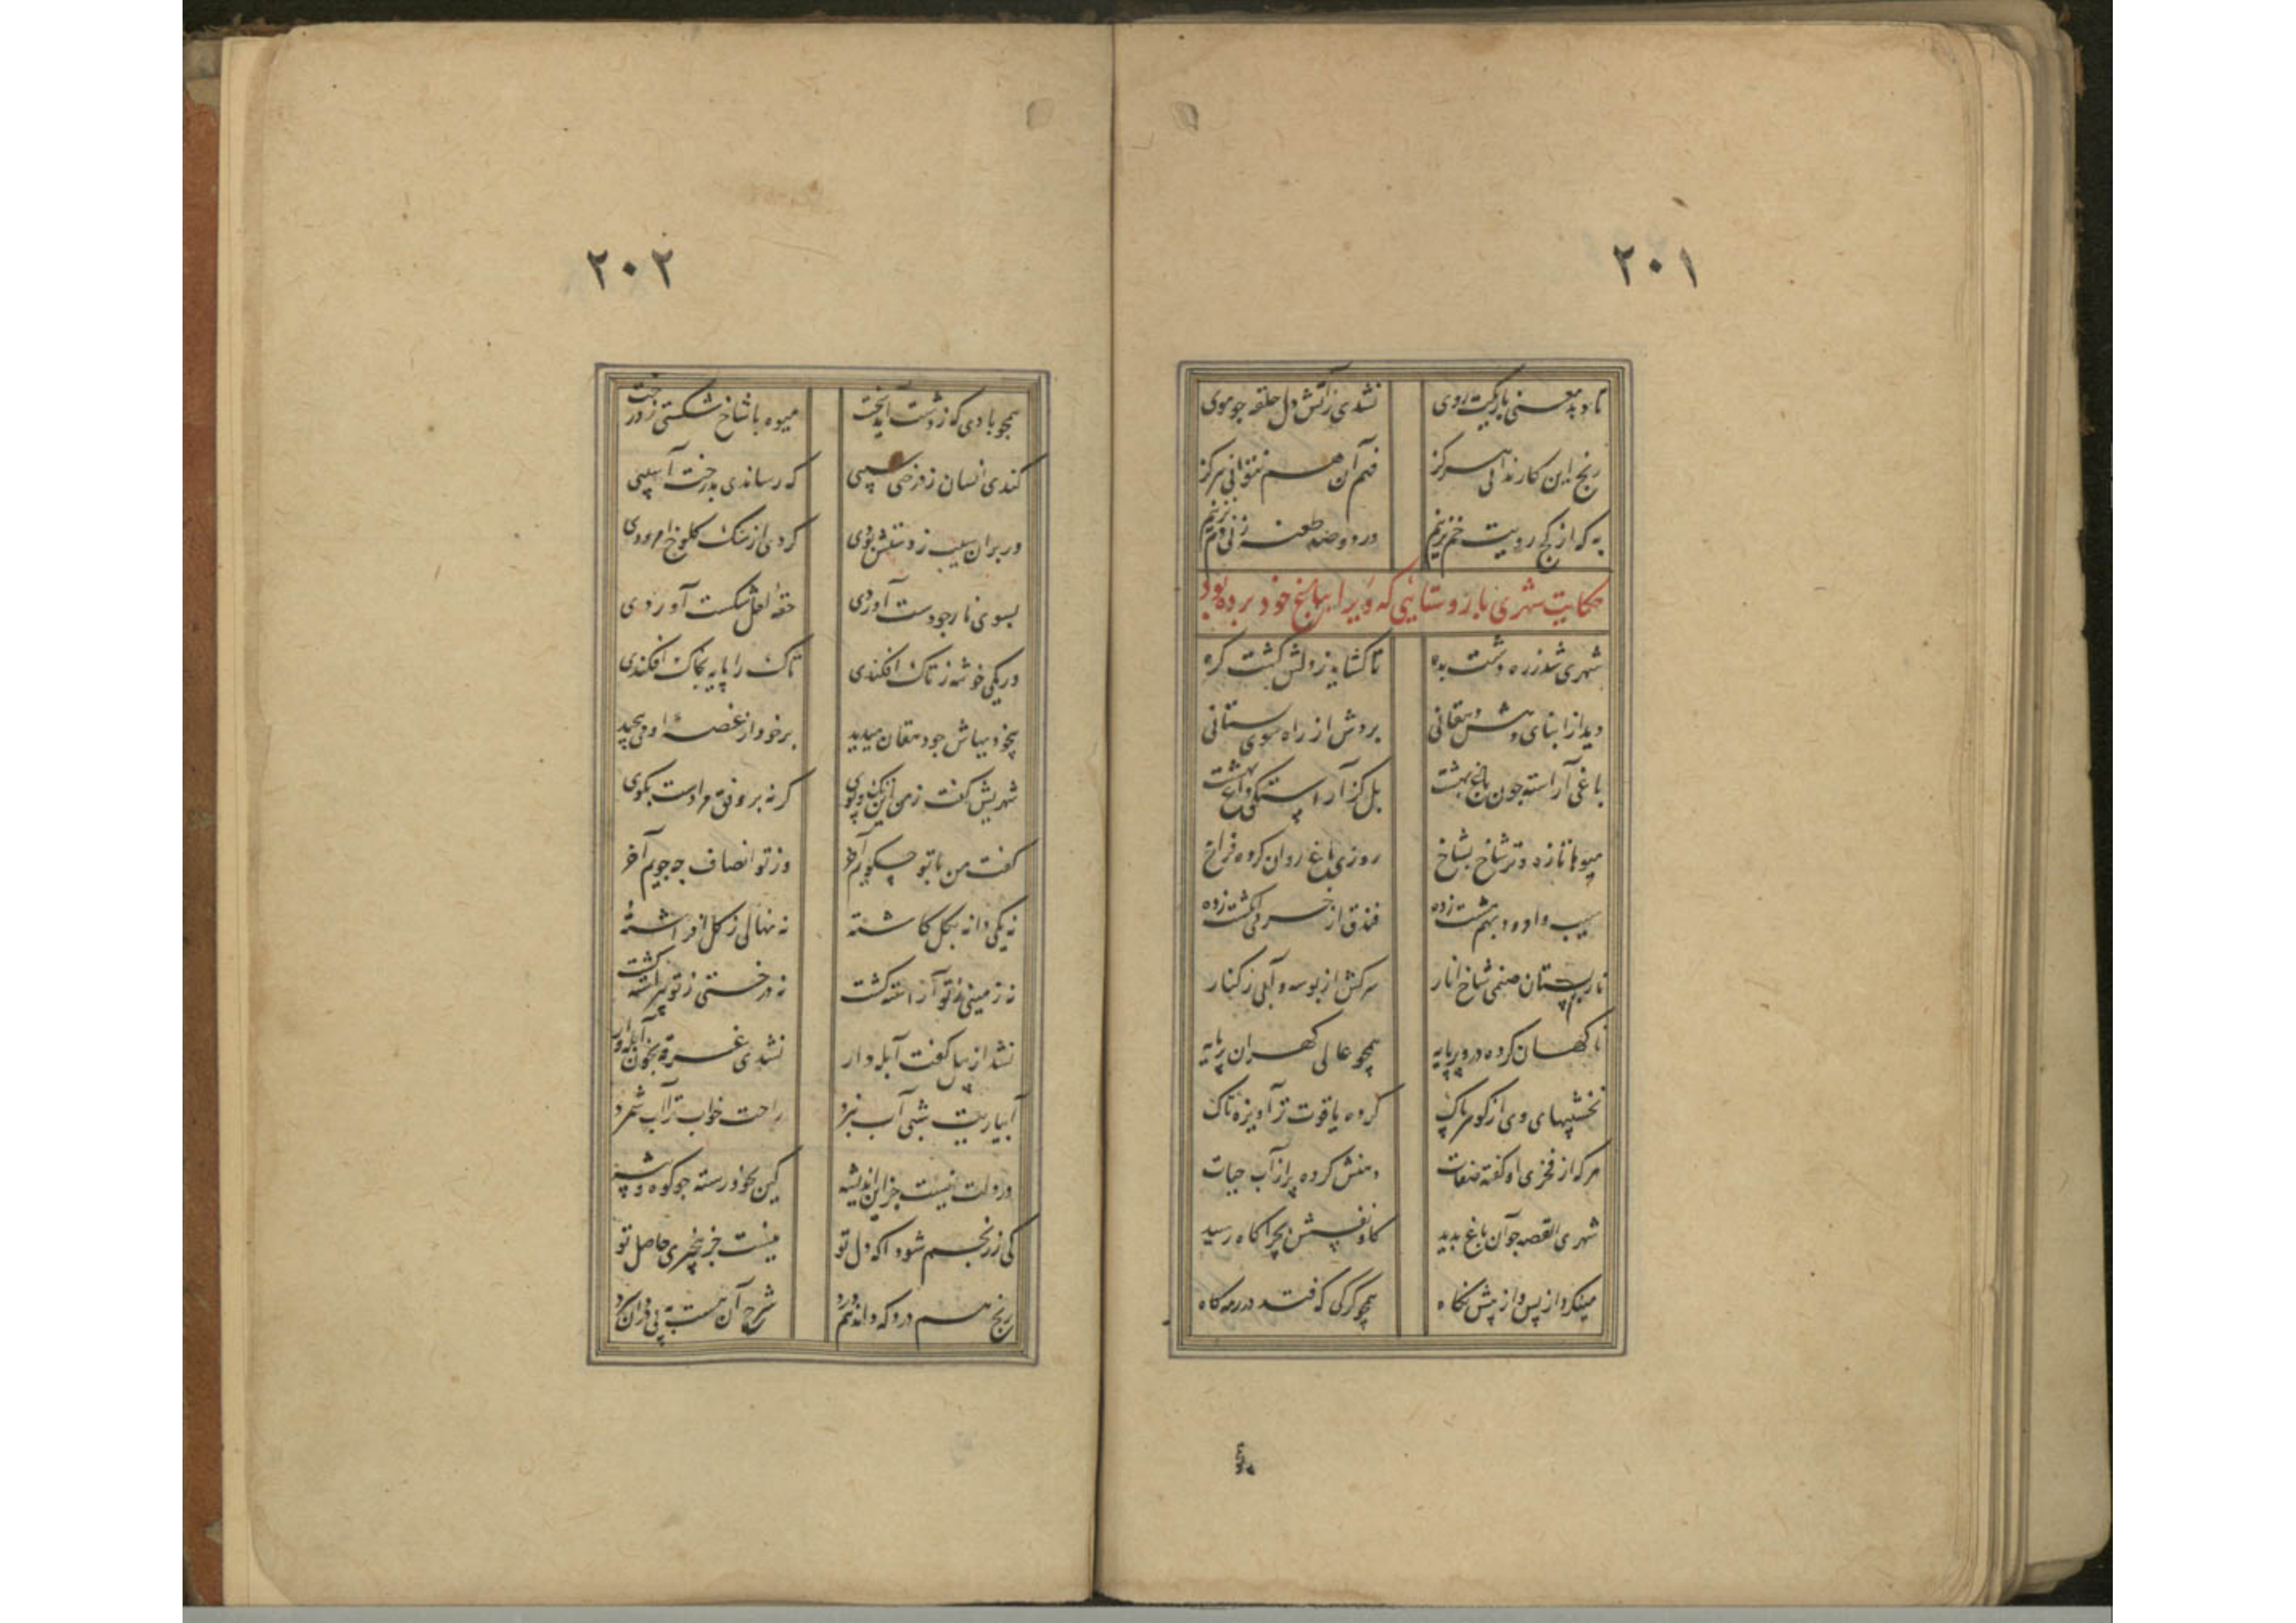 ۲۰۱
تا دید معنی باریکت روی نشدی زآتش دل حلقه جو موی
رنج این کار ندانی هرگز فهم آن هم نتوانی هرگز
به که از کج رویت خم نزنیم در دو صد طعنه زنی دم نزنیم
حکایت شهری با روستایی که ویرا بباغ خود برده بود
شهری شد ز ره دشت بده تا کشاید ز دلش کشت کره
دید از ابنای دهش دهقانی بردش از راه سوی بستانی
باغی آراسته جون باغ بهشت بل کز آراستگی داغ بهشت
میوها تازه و تر شاخ بشاخ روزی باغ روان کرده فراخ
سیب و امرود بهم مشت زده فندق از خرمی انکشت زده
نار پستان صنمی شاخ انار سرکش از بوسه و آبی ز کنار
ناکهان کرده درو پر پایه همچو عالی کهران پر مایه
بخششهای وی از کوهر پاک کرده یاقوت تر آویزه تاک
هرکه از فخری او کفته صفات دهنش کرده پر از آب حیات
شهری القصه جو آن باغ بدید کاو نفسش بچراکاه رسید
میفکند از پس و از پیش نکاه همچو کرکی که فتد در رمه کاه
۲۰۲
همچو بادی که ز دشت آید سخت میوه با شاخ شکستی ز درخت
کندی انسان ز درختی سیبی که رساندی بدرخت آسیبی
ور بر آن سیب ز دستش بودی کردی از سنک کلوخ امرودی
بسوی نار جو دست آوردی حقه لعل شکست آوردی
ور یکی خوشه ز تاک افکندی تاک را پایه بخاک افکندی
بیخودیهاش جو دهقان میدید بر خود از غصه او میپیچید
شهریش کفت ز من این تک و پوی کر نه بر وفق مرادست بکوی
کفت من با تو چه کویم آخر وز تو انصاف چه جویم آخر
نه یکی دانه بکل کاشته نه نهالی ز کل افراشته
نه زمینی ز تو آراسته کشت نه درختی ز تو پیراسته کشت
نشد از بیل کفت آبله دار نشدی غرقه بخون آبله وار
آبیاریت شبی آب نبرد راحت خواب ترا آب شمرد
در دلت نیست جز این اندیشه کین بخود رسته جو کوه و بیشه
کی ز رنجم شود آکه دل تو نیست جز بیخبری حاصل تو
رنج هم درد که داند هم درد شرح آن هست به بی دردان سرد